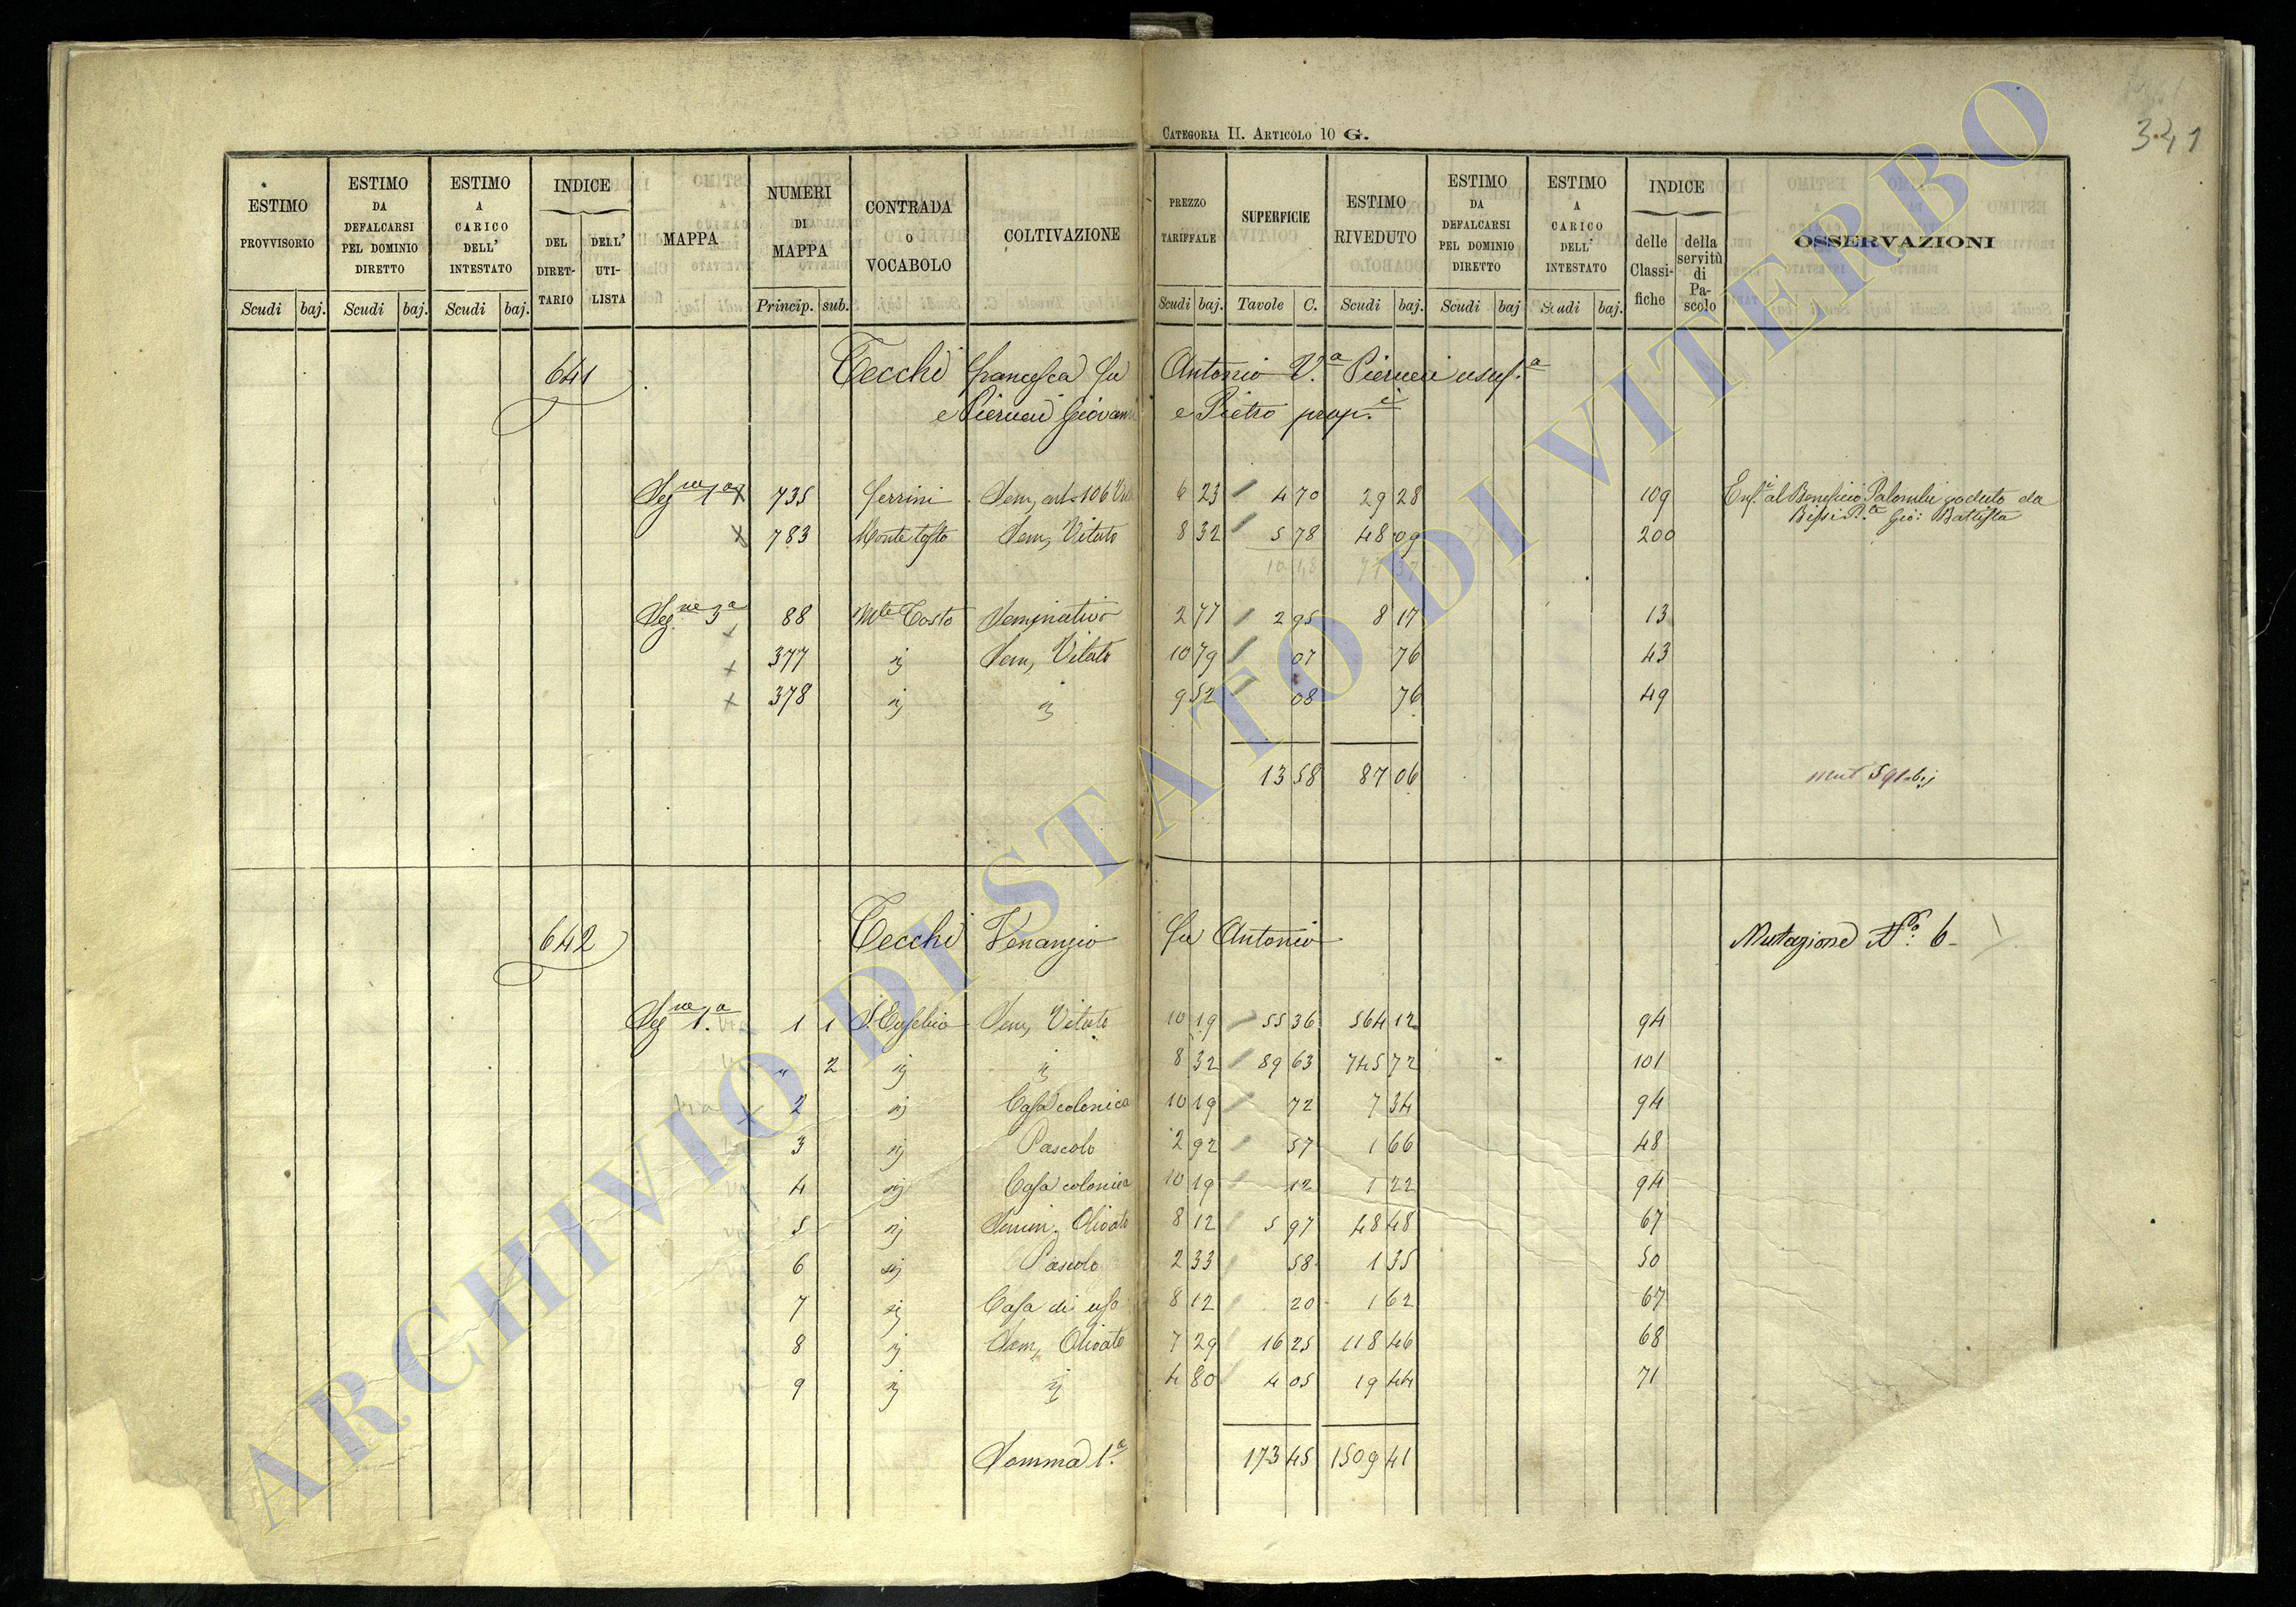 CATEGORIA II. ARTICOLO 10 G.
341
ESTIMO PROVVISORIO Scudi baj.
ESTIMO DA DEFALCARSI PEL DOMINIO DIRETTO Scudi baj.
ESTIMO A CARICO DELL' INTESTATO Scudi baj.
INDICE DEL DIRET-TARIO DELL' UTI-LISTA
MAPPA
NUMERI DI MAPPA Princip. sub.
CONTRADA O VOCABOLO
COLTIVAZIONE
PREZZO TARIFFALE Scudi baj.
SUPERFICIE Tavole C.
ESTIMO RIVEDUTO Scudi baj.
ESTIMO DA DEFALCARSI PEL DOMINIO DIRETTO Scudi baj
ESTIMO A CARICO DELL' INTESTATO Scudi baj.
INDICE delle Classi-fiche della servitù di Pa-scolo
OSSERVAZIONI
641 Tecchi Francesca fu Antonio V.a Pierucci usuf.a
e Pierucci Giovanni e Pietro prop.i
Seg.ne 1a 735 Ferrini Sem, 106 6 23 4 70 29 28 109 Enf.i al Beneficio Palombi goduto da
Gio: Battista
783 Monte tosto Sem, Vitato 8 32 5 78 48 09 200
Seg.ne 3a 88 Mte Tosto Seminativo 2 77 2 95 8 17 13
377 ij Sem, Vitato 10 79 07 76 43
378 ij ij 9 52 08 76 49
13 58 87 06 mut 591 bis
642 Tecchi Venanzio fu Antonio Mutazione No: 6
Seg.ne 1.a 1 1 S. Eusebio Sem, Vitato 10 19 55 36 564 12 94
" 2 ij ij 8 32 89 63 745 72 101
2 ij Casa colonica 10 19 72 7 34 94
3 ij Pascolo 2 92 57 1 66 48
4 ij Casa colonica 10 19 12 1 22 94
5 ij Semin. Olivato 8 12 5 97 48 48 67
6 ij Pascolo 2 33 58 1 35 50
7 ij Casa di uso 8 12 20 1 62 67
8 ij Sem, Olivato 7 29 16 25 118 46 68
9 ij ij 4 80 4 05 19 44 71
Somma 1.a 173 45 1509 41
ARCHIVIO DI STATO DI VITERBO